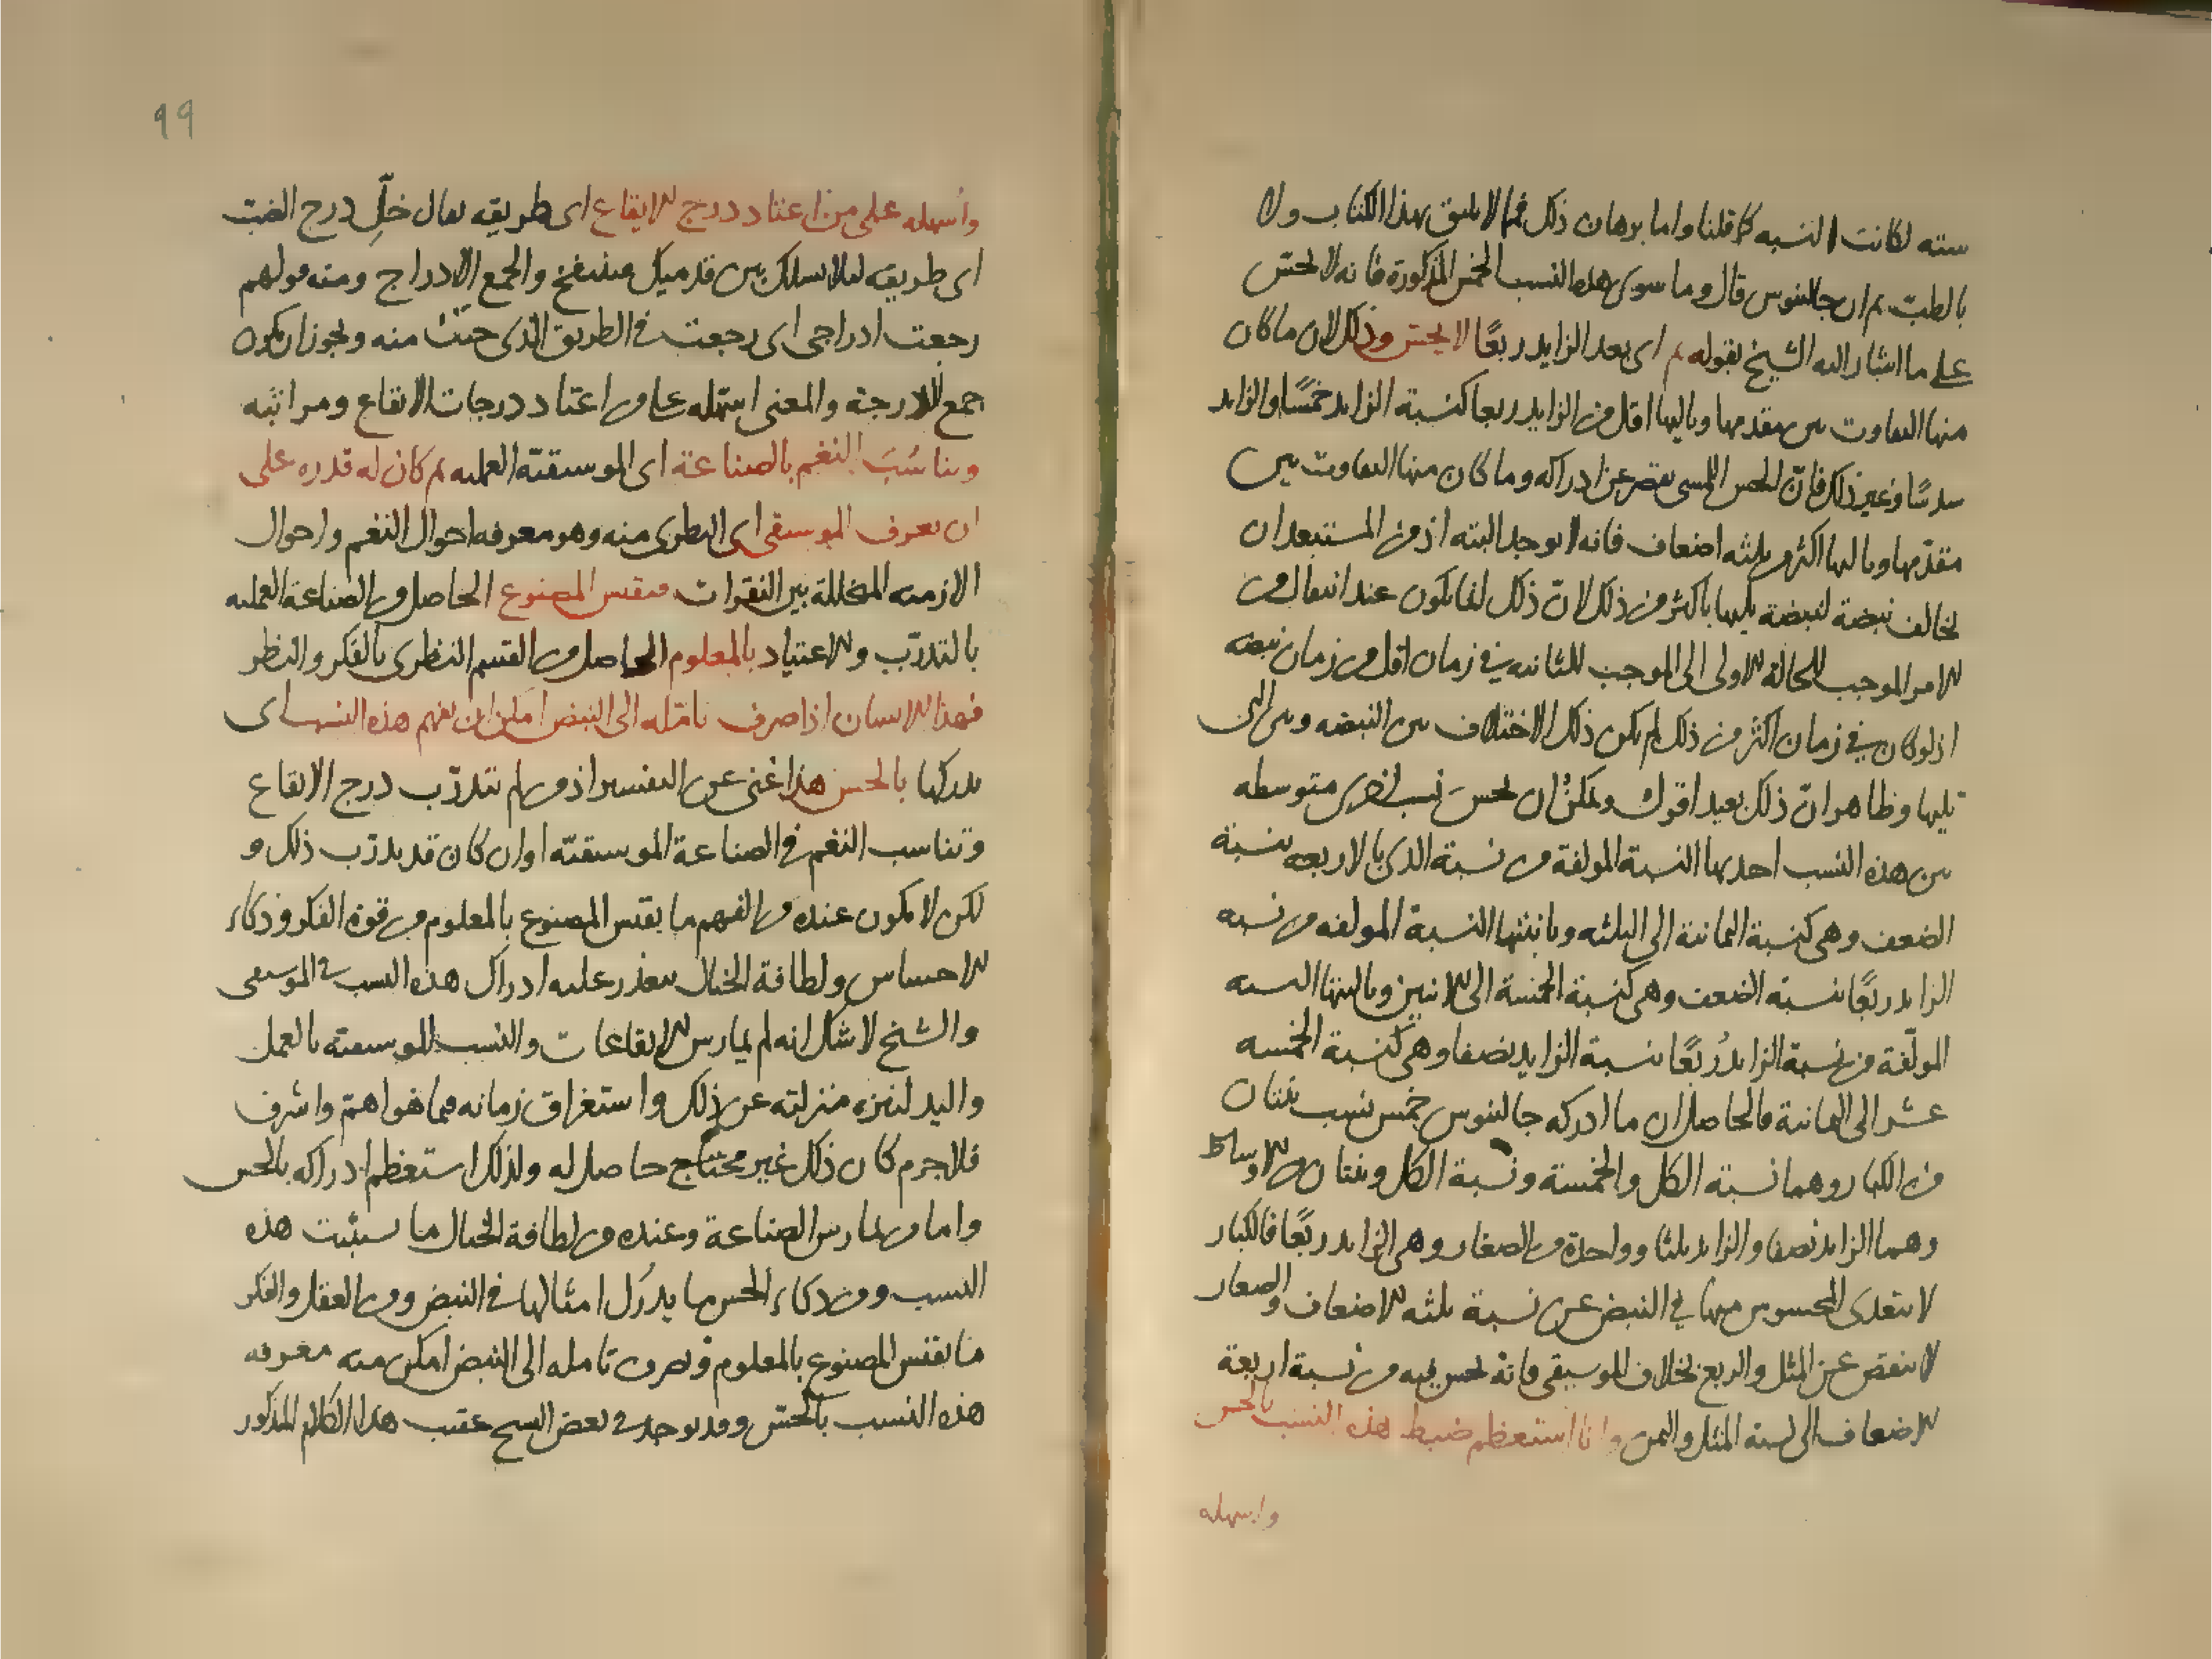 سته لكانت النسبه كما قلنا واما برهان ذلك فمما لا يليق بهذا الكتاب ولا
بالطب ثم ان جالينوس قال وما سوى هذه النسب الخمس المذكورة فانه لا يحس
على ما اشار اليه الشيخ بقوله ثم اى بعد الزايد ربعًا لا يحس وذلك لان ما كان
منها التفاوت بين مقدمها وتاليها اقل من الزايد ربعا كنسبة الزايد خمسًا والزايد
سدسًا وغير ذلك فانّ الحس اللمسى يقصر عن ادراكه وما كان منها التفاوت بين
مقدّمها وتاليها اكثر من ثلثه اضعاف فانه لا يوجد البته اذ من المستبعد ان
تخالف نبضة لنبضة تليها باكثر من ذلك لانّ ذلك انما يكون عند انتقال من
الامر الموجب للحالة الاولى الى الموجب للثانيه فى زمان اقل من زمان نبضه
اذ لو كان فى زمان اكثر من ذلك لم يكن ذلك الاختلاف بين النبضه وبين التى
تليها وظاهر انّ ذلك بعيد اقول ويمكن ان يحسّ نسب اخرى متوسطه
بين هذه النسب احديها النسبة المولفة من نسبة الذى بالاربعه بنسبة
الضعف وهى كنسبة الثمانية الى الثلثه وثانيتها النسبة المولفه من نسبه
الزايد ربعًا بنسبه الضعف وهى كنسبة الخمسة الى الاثنين وثالثتها النسبه
المولّفة من نسبة الزايد رُبعًا بنسبة الزايد نصفا وهى كنسبة الخمسه
عشر الى الثمانية فالحاصل ان ما ادركه جالينوس خمس نسب ثنتان
من الكبار وهما نسبة الكل والخمسة ونسبة الكل وثنتان من الاوساط
وهما الزايد نصفا والزايد ثلثا وواحدة من الصغار وهى الزايد ربعًا فالكبار
لا يتعدى المحسوس منها فى النبض عن نسبة ثلثه الاضعاف والصغار
لا ينقص عن المثل والربع بخلاف الموسيقى فانه يحس فيه من نسبة اربعة
الاضعاف الى نسبة المثل والثمن وانا استعظم ضبط هذه النسب بالحس
واسهله
99
واُسهله على من اعتاد درج الايقاع اى طريقه يقال خلّ درج الضب
اى طريقه لئلا يسلك بين قدميك فينتفخ والجمع الادراج ومنه قولهم
رجعت ادراجى اى رجعت فى الطريق الذى جئت منه ويجوز ان يكون
جمع الدرجة والمعنى اسهله على من اعتاد درجات الايقاع ومراتبه
وتناسُبَ النغم بالصناعة اى الموسيقيّة العمليه ثم كان له قدره على
ان يعرف الموسيقى اى النظرى منه وهو معرفه احوال النغم واحوال
الازمنه المتخللة بين النقرات فيقيس المصنوع الحاصل من الصناعة العمليه
بالتدرّب والاعتياد بالمعلوم الحاصل من القسم النظرى بالفكر والنظر
فهذا الانسان اذا صرف تامّله الى النبض امكن ان يفهم هذه النسب اى
يدركها بالحسّ هذا غنى عن التفسير اذ من لم يتدرّب درج الايقاع
وتناسب النغم فى الصناعة الموسيقيّه او ان كان قد تدرّب ذلك و
لكن لا يكون عنده من الفهم ما يقيس المصنوع بالمعلوم من قوة الفكر وذكاء
الاحساس ولطافة الخيال يتعذر عليه ادراك هذه النسب فى الموسيقى
والشيخ لا شك انه لم يمارس الايقاعات والنسب الموسيقيه بالعمل
واليد لتنزه منزلته عن ذلك واستغراق زمانه فيما هو اهمّ واشرف
فلا جرم كان ذلك غير محتاج حاصل له ولذلك استعظم ادراكه بالحس
واما من يمارس الصناعة وعنده من لطافة الخيال ما يثبت هذه
النسب ومن ذكاء الحس ما يدرك امثالها فى النبض ومن العقل والفكر
ما يقيس المصنوع بالمعلوم وصرف تامله الى النبض امكن منه معرفه
هذه النسب بالحسّ وقد يوجد فى بعض النسخ عقيب هذا الكلام المذكور